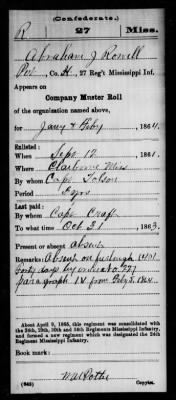 (Confederate.)
R 27 Miss.
Abraham J Rowell
Pvt, Co. H, 27 Reg't Mississippi Inf.
Appears on
Company Muster Roll
of the organization named above,
for Jany & Feby, 1864.
Enlisted:
When Sept 12, 1861.
Where Claiborne Miss
By whom Capt
Period 3 yrs
Last paid:
By whom Capt Craft
To what time Oct 31, 1863.
Present or absent absent
Remarks: Absent on furlough
forty days by order
paragraph from Feby 5, 1864
About April 9, 1865, this regiment was consolidated with
the 24th, 29th, 30th and 34th Regiments Mississippi Infantry,
and formed a new regiment which was designated the 24th
Regiment Mississippi Infantry.
Book mark:
(642) Copyist.